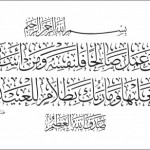 بسم الله الرحمن الرحيم
من عمل صالحا فلنفسه ومن أساء
فعليها وما ربك بظلام للعبيد
صدق الله العظيم